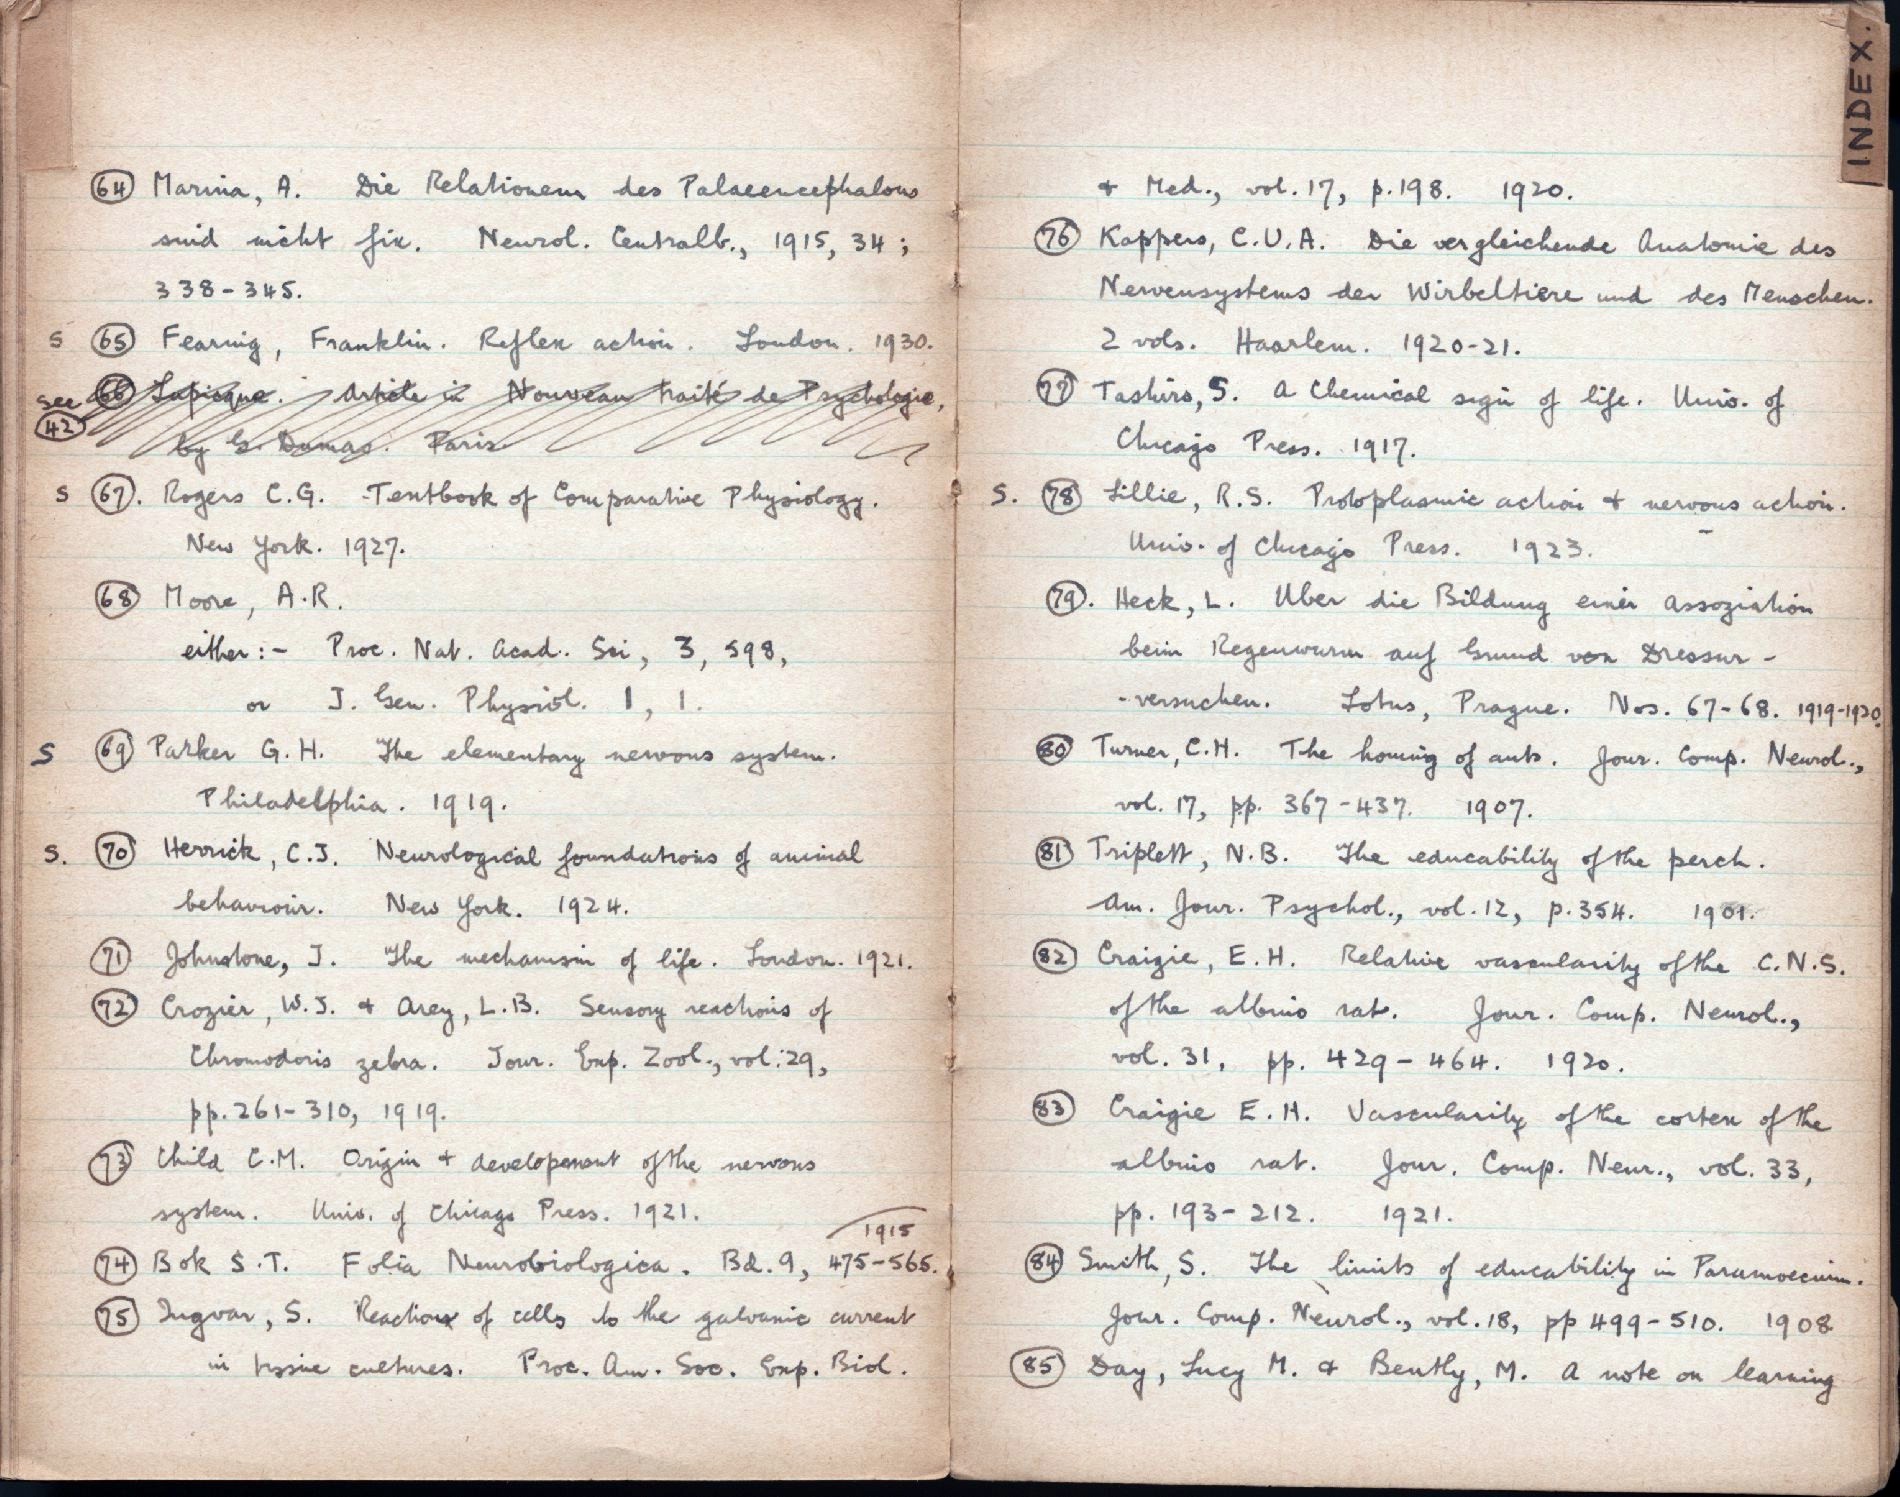 (64) Marina, A. Die Relationem des Palaeencephalons
sind nicht fix. Neurol. Centralb., 1915, 34;
338-345.
S (65) Fearing, Franklin. Reflex action. London. 1930.
See (66) Lapicque. Article in Nouveau traité de Psychologie,
(42) by G. Dumas. Paris
S (67). Rogers C.G. Textbook of Comparative Physiology.
New York. 1927.
(68) Moore, A.R.
either:- Proc. Nat. Acad. Sci, 3, 598,
or J. Gen. Physiol. 1, 1.
S (69) Parker G.H. The elementary nervous system.
Philadelphia. 1919.
S. (70) Herrick, C.J. Neurological foundations of animal
behaviour. New York. 1924.
(71) Johnstone, J. The mechanism of life. London. 1921.
(72) Crozier, W.J. & Arey, L.B. Sensory reactions of
Chromodoris zebra. Jour. Exp. Zool., vol. 29,
pp. 261-310, 1919.
(73) Child C.M. Origin & development of the nervous
system. Univ. of Chicago Press. 1921.
1915
(74) Bok S.T. Folia Neurobiologica. Bd. 9, 475-565.
(75) Ingvar, S. Reaction of cells to the galvanic current
in tissue cultures. Proc. Am. Soc. Exp. Biol.
INDEX.
& Med., vol. 17, p. 198. 1920.
(76) Kappers, C.U.A. Die vergleichende Anatomie des
Nervensystems der Wirbeltiere und des Menschen.
2 vols. Haarlem. 1920-21.
(77) Tashiro, S. A Chemical sign of life. Univ. of
Chicago Press. 1917.
S. (78) Lillie, R.S. Protoplasmic action & nervous action.
Univ. of Chicago Press. 1923.
(79). Heck, L. Uber die Bildung einer Assoziation
beim Regenwurm auf Grund von Dressur-
-versuchen. Lotus, Prague. Nos. 67-68. 1919-1920.
(80) Turner, C.H. The homing of ants. Jour. Comp. Neurol.,
vol. 17, pp. 367-437. 1907.
(81) Triplett, N.B. The educability of the perch.
Am. Jour. Psychol., vol. 12, p. 354. 1901.
(82) Craigie, E.H. Relative vascularity of the C.N.S.
of the albino rat. Jour. Comp. Neurol.,
vol. 31, pp. 429-464. 1920.
(83) Craigie E.H. Vascularity of the cortex of the
albino rat. Jour. Comp. Neur., vol. 33,
pp. 193-212. 1921.
(84) Smith, S. The limits of educability in Paramoecium.
Jour. Comp. Neurol., vol. 18, pp 499-510. 1908
(85) Day, Lucy M. & Bently, M. A note on learning